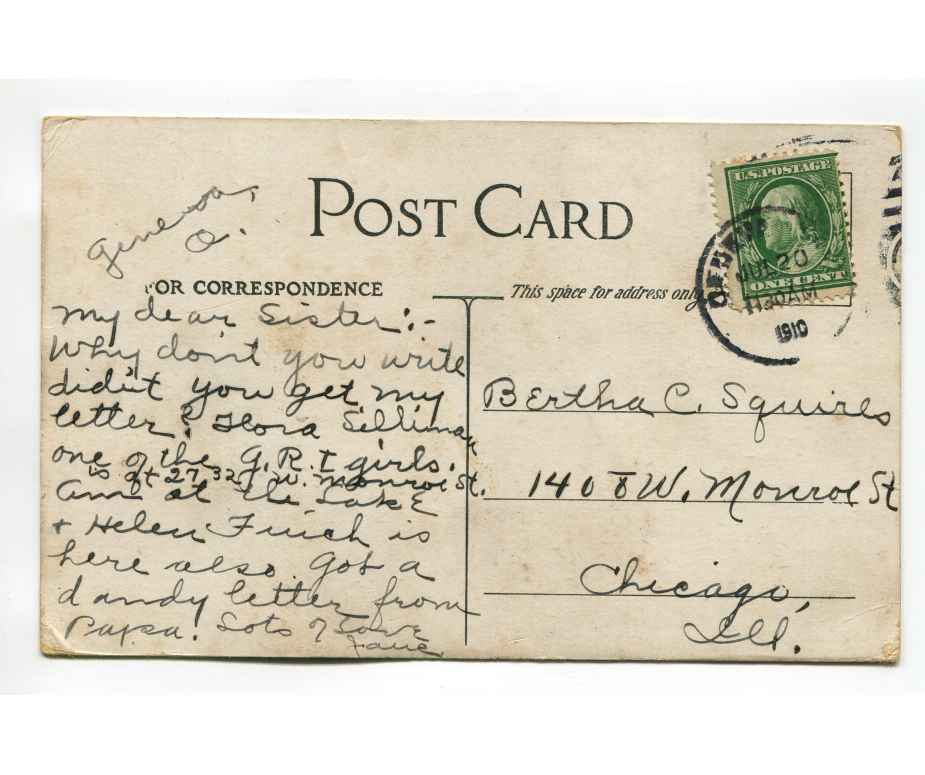 Geneva,
O.
POST CARD
OR CORRESPONDENCE
This space for address only
U.S. POSTAGE
ONE CENT
JUL 20
11 30 AM
1910
My dear Sister:-
Why don't you write
didn't you get my
letter? Flora Silliman
one of the G.R.I girls.
is at 2732 W. Monroe St.
am at the Lake
+ Helen Finch is
here also Got a
dandy letter from
Papa. Lots of Love
Bertha C. Squires
1408 W. Monroe St
Chicago,
Ill.